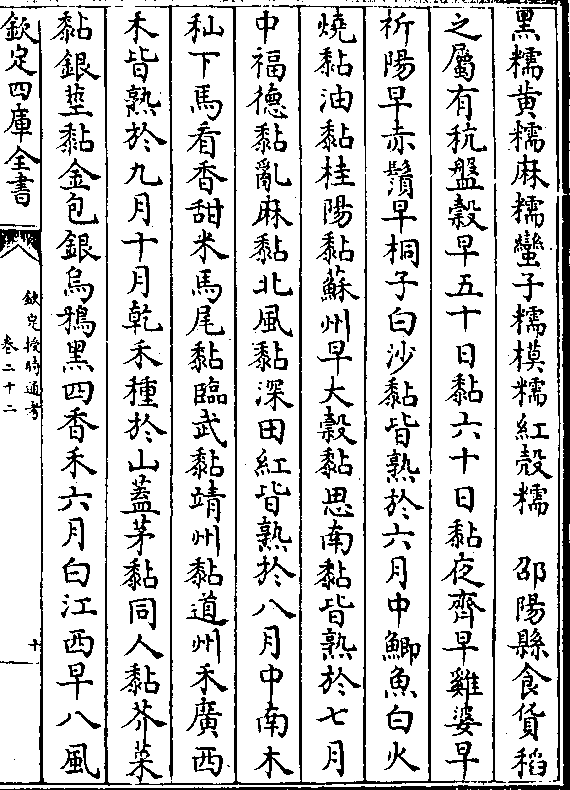 黑糯黄糯麻糯蠻子糯模糯紅殻糯　邵陽縣食貨稻
之屬有秔盤榖早五十日黏六十日黏夜齊早雞婆早
析陽早赤鬚早桐子白沙黏皆熟於六月中鯽魚白火
燒黏油黏桂陽黏蘇州早大榖黏思南黏皆熟於七月
中福德黏亂麻黏北風黏深田紅皆熟於八月中南木
秈下馬看香甜米馬尾黏臨武黏靖州黏道州禾廣西
禾皆熟於九月十月乾禾種於山蓋茅黏同人黏芥菜
黏銀莖黏金包銀烏鴉黑四香禾六月白江西早八風
欽定四庫全書
欽定授時通考
卷二十二
十